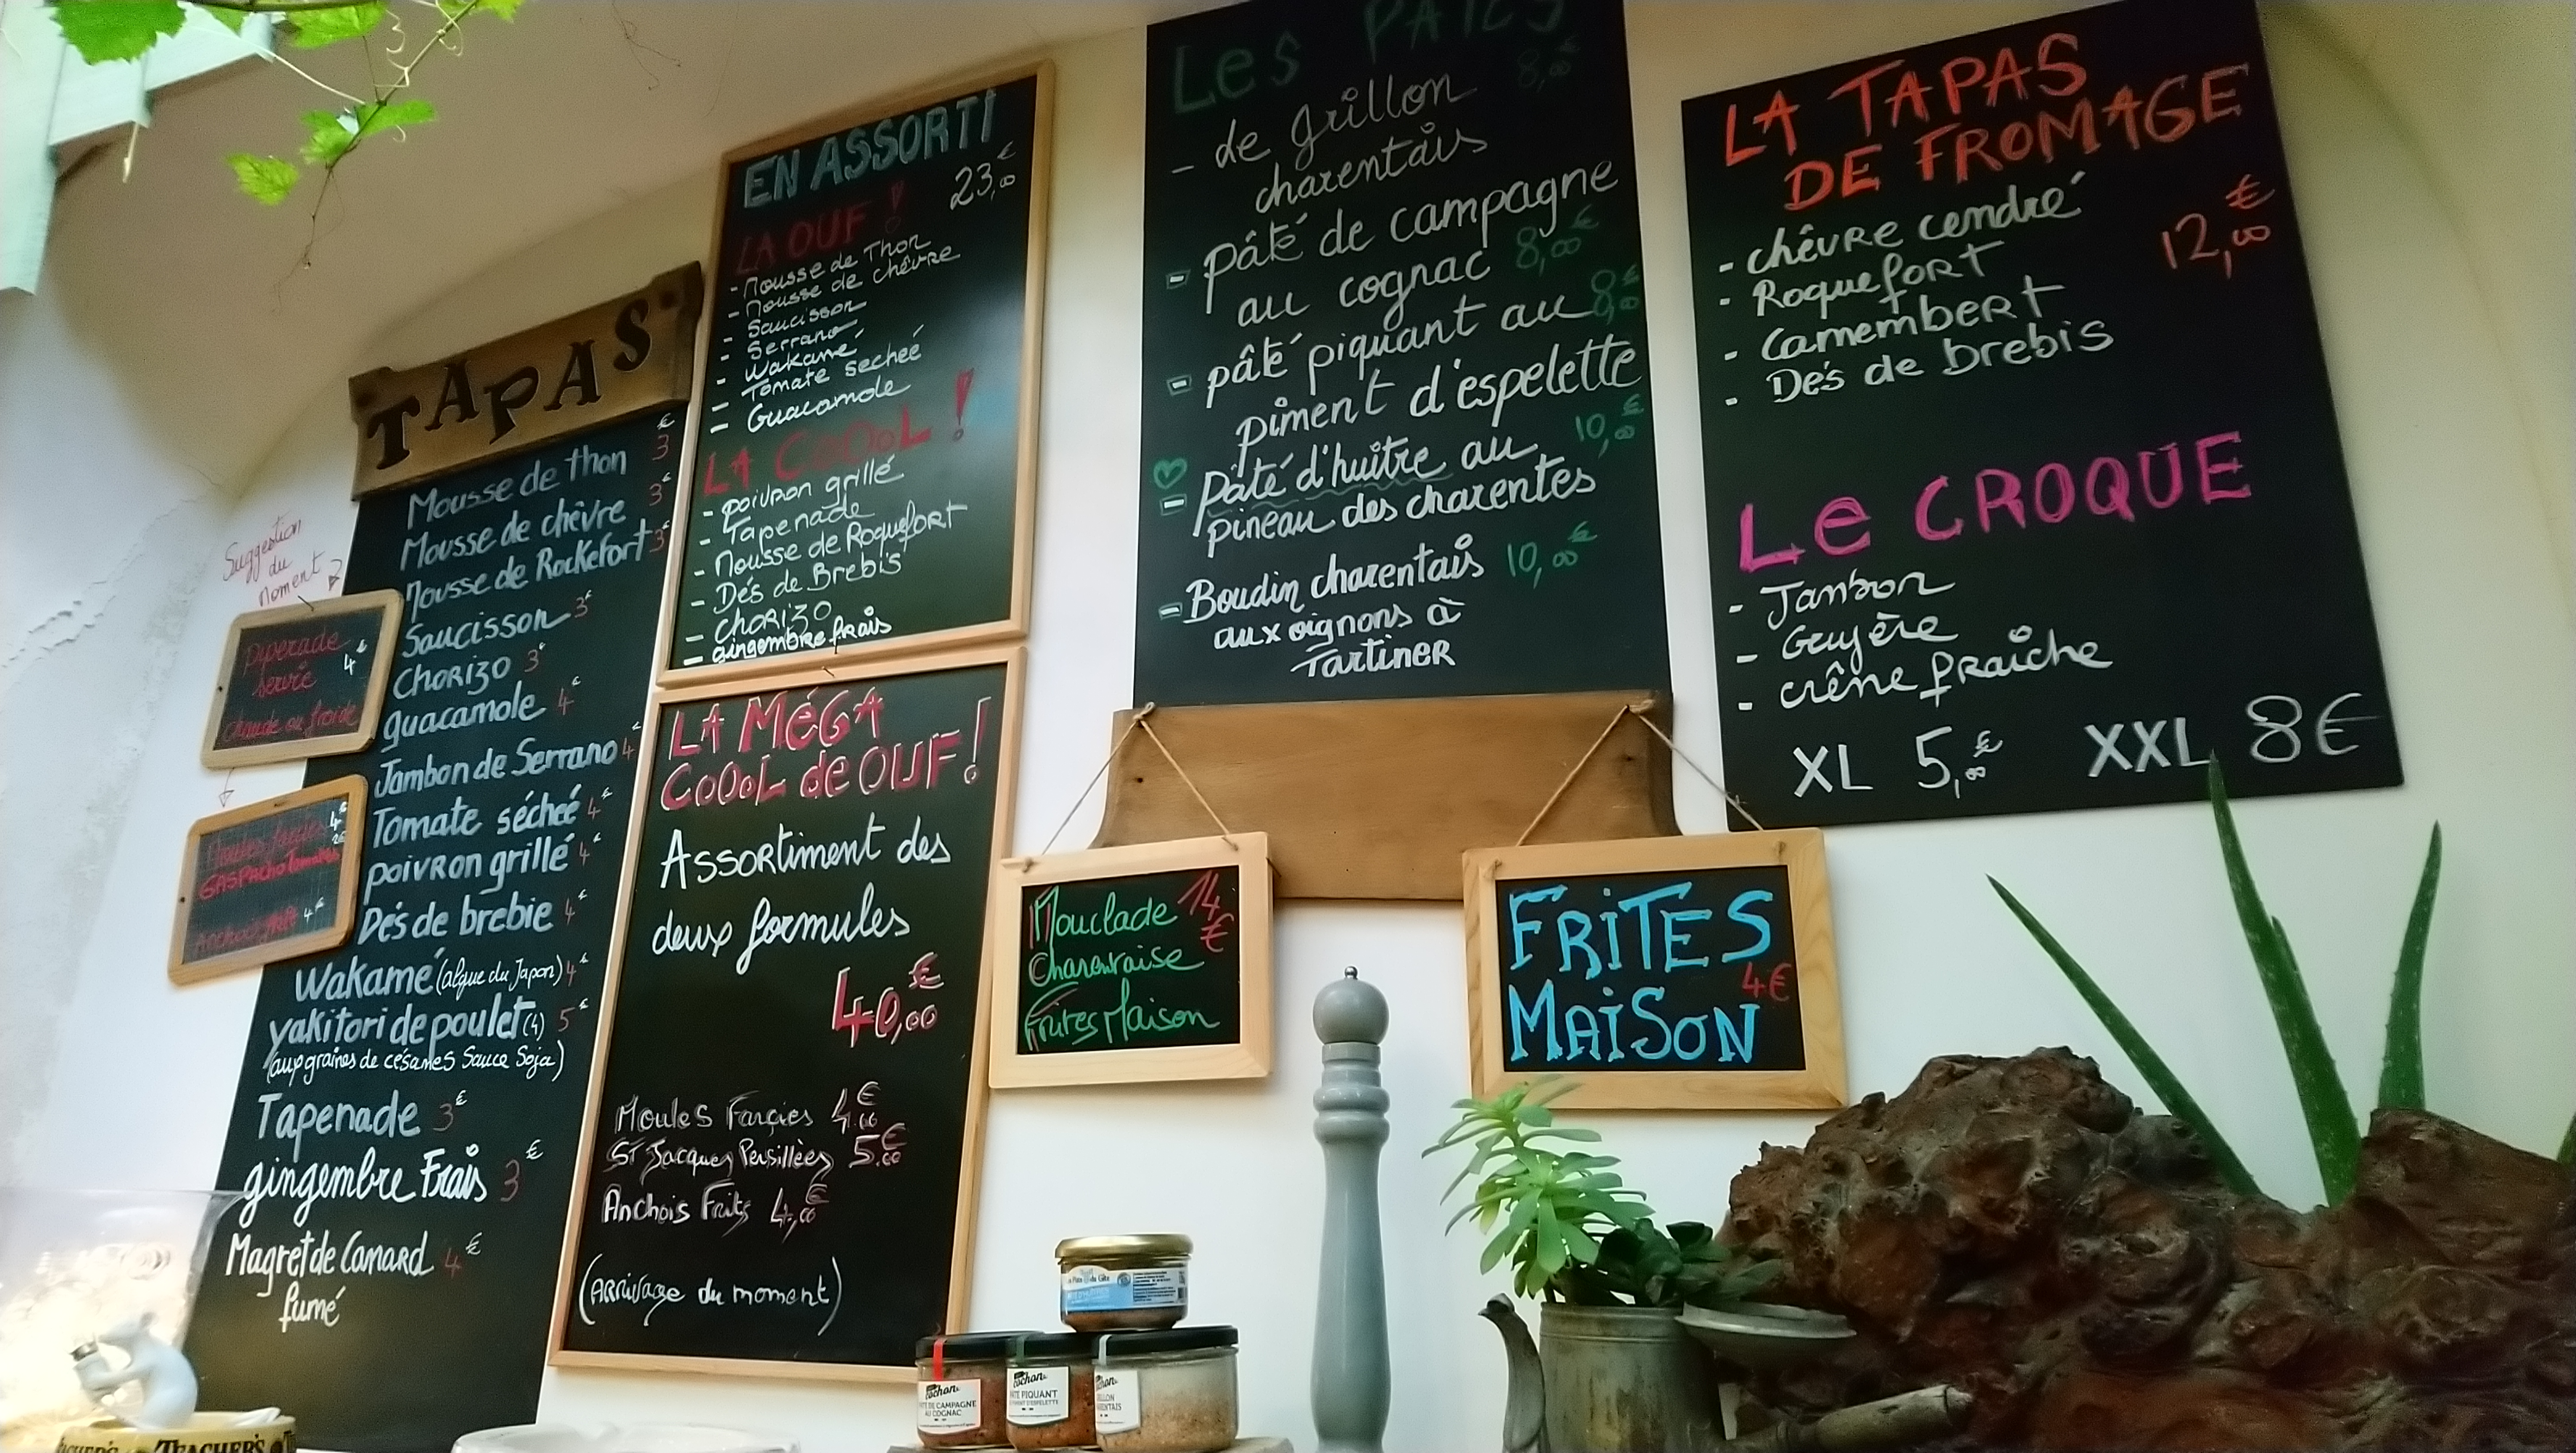 TAPAS
€
Mousse de thon 3
Mousse de chèvre 3€
Mousse de Rockefort 3€
Saucisson 3€
Chorizo 3€
guacamole 4€
Jambon de Serrano 4€
Tomate séchée 4€
poivron grillé 4€
Dés de brebie 4€
Wakamé (algue du Japon) 4€
yakitori de poulet (4) 5€
(aux graines de césames Sauce Soja)
Tapenade 3€
gingembre Frais 3€
Magret de Canard 4€
fumé
Suggestion
du
moment
Piperade
servie 4€
chaude ou froide
4€
GASPACHO Tomates
4€
EN ASSORTI
LA OUF ! 23,00€
- Mousse de Thon
- Mousse de chèvre
- Saucisson
- Serrano
- Wakamé
- Tomate sechée
- Guacamole
LA COOOL !
- poivron grillé
- Tapenade
- Mousse de Roquefort
- Dés de Brebis
- Chorizo
- gingembre frais
LA MÉGA
COOOL de OUF !
Assortiment des
deux formules
40,00€
Moules Farçies 4.00€
St Jacques Persillées 5.00€
Anchois Frits 4,00€
(Arrivage du moment)
Les PATÉS
- de grillon 8,00€
charentais
- pâté de campagne
au cognac 8,00€
- pâté piquant au 8,00€
piment d'espelette
- Pâté d'huître au 10,00€
pineau des charentes
- Boudin charentais 10,00€
aux oignons à
Tartiner
Mouclade 14€
Charentaise
Frites Maison
FRITES
MAISON 4€
LA TAPAS
DE FROMAGE
- chêvre cendré 12,00€
- Roquefort
- Camembert
- Dés de brebis
Le CROQUE
- Jambon
- Gruyère
- crême fraîche
XL 5,00€ XXL 8€
cochon
DE CAMPAGNE
AU COGNAC
cochon
PIQUANT
TEACHER'S